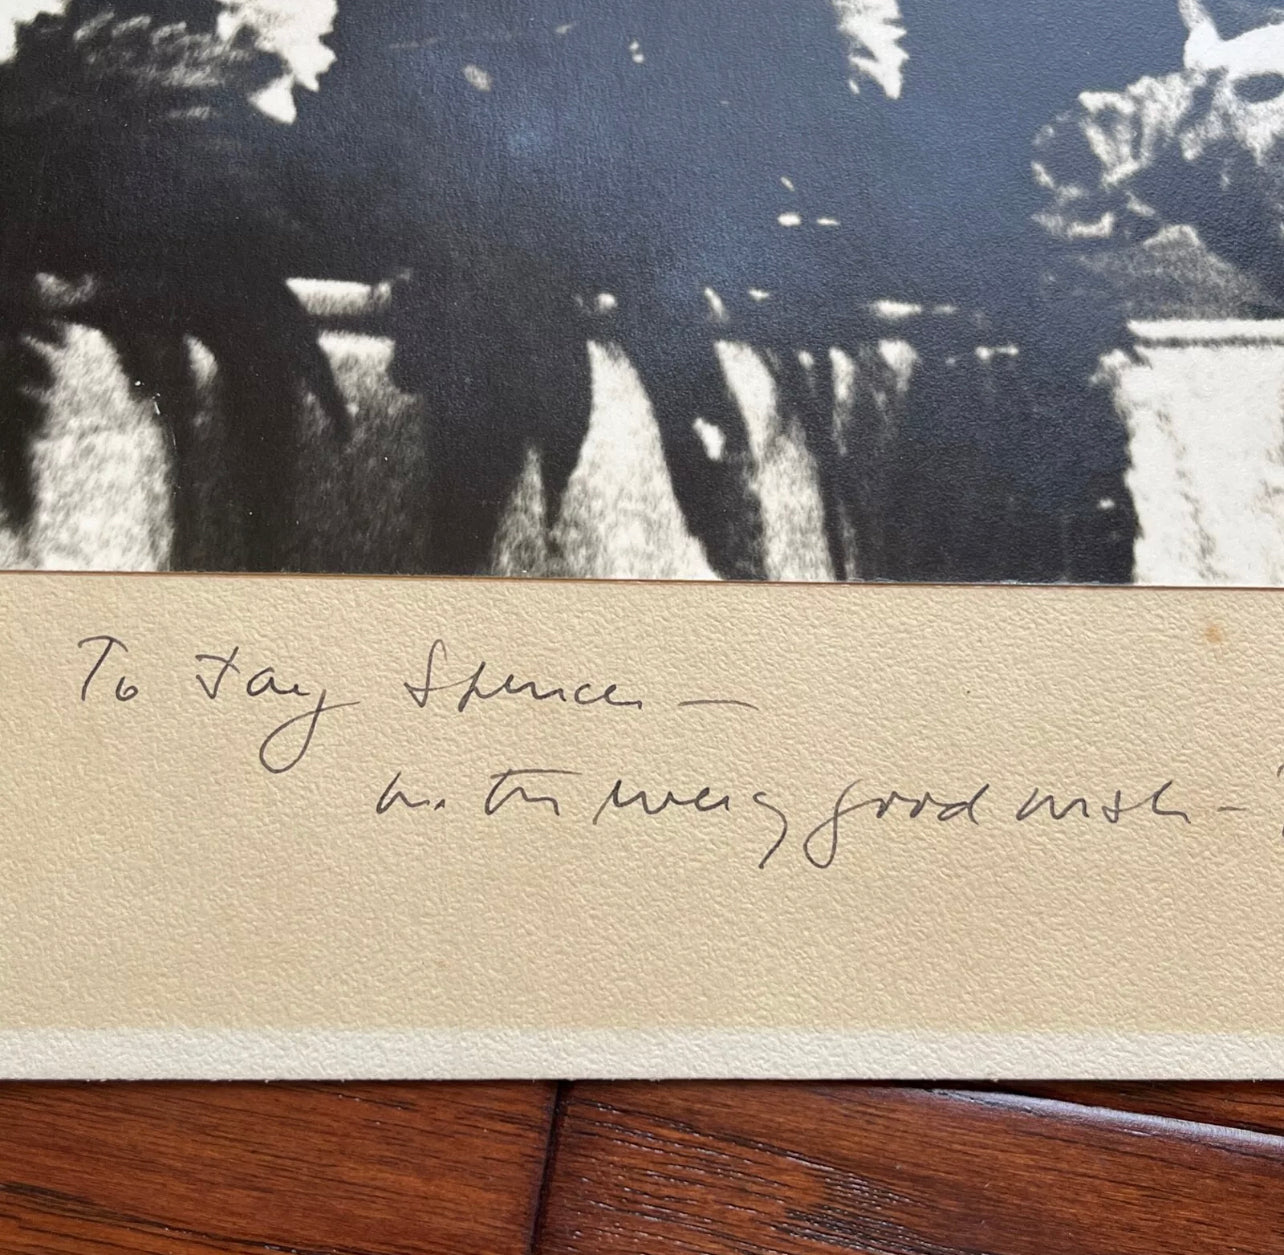 To Jay Spencer —
with very good wishes –